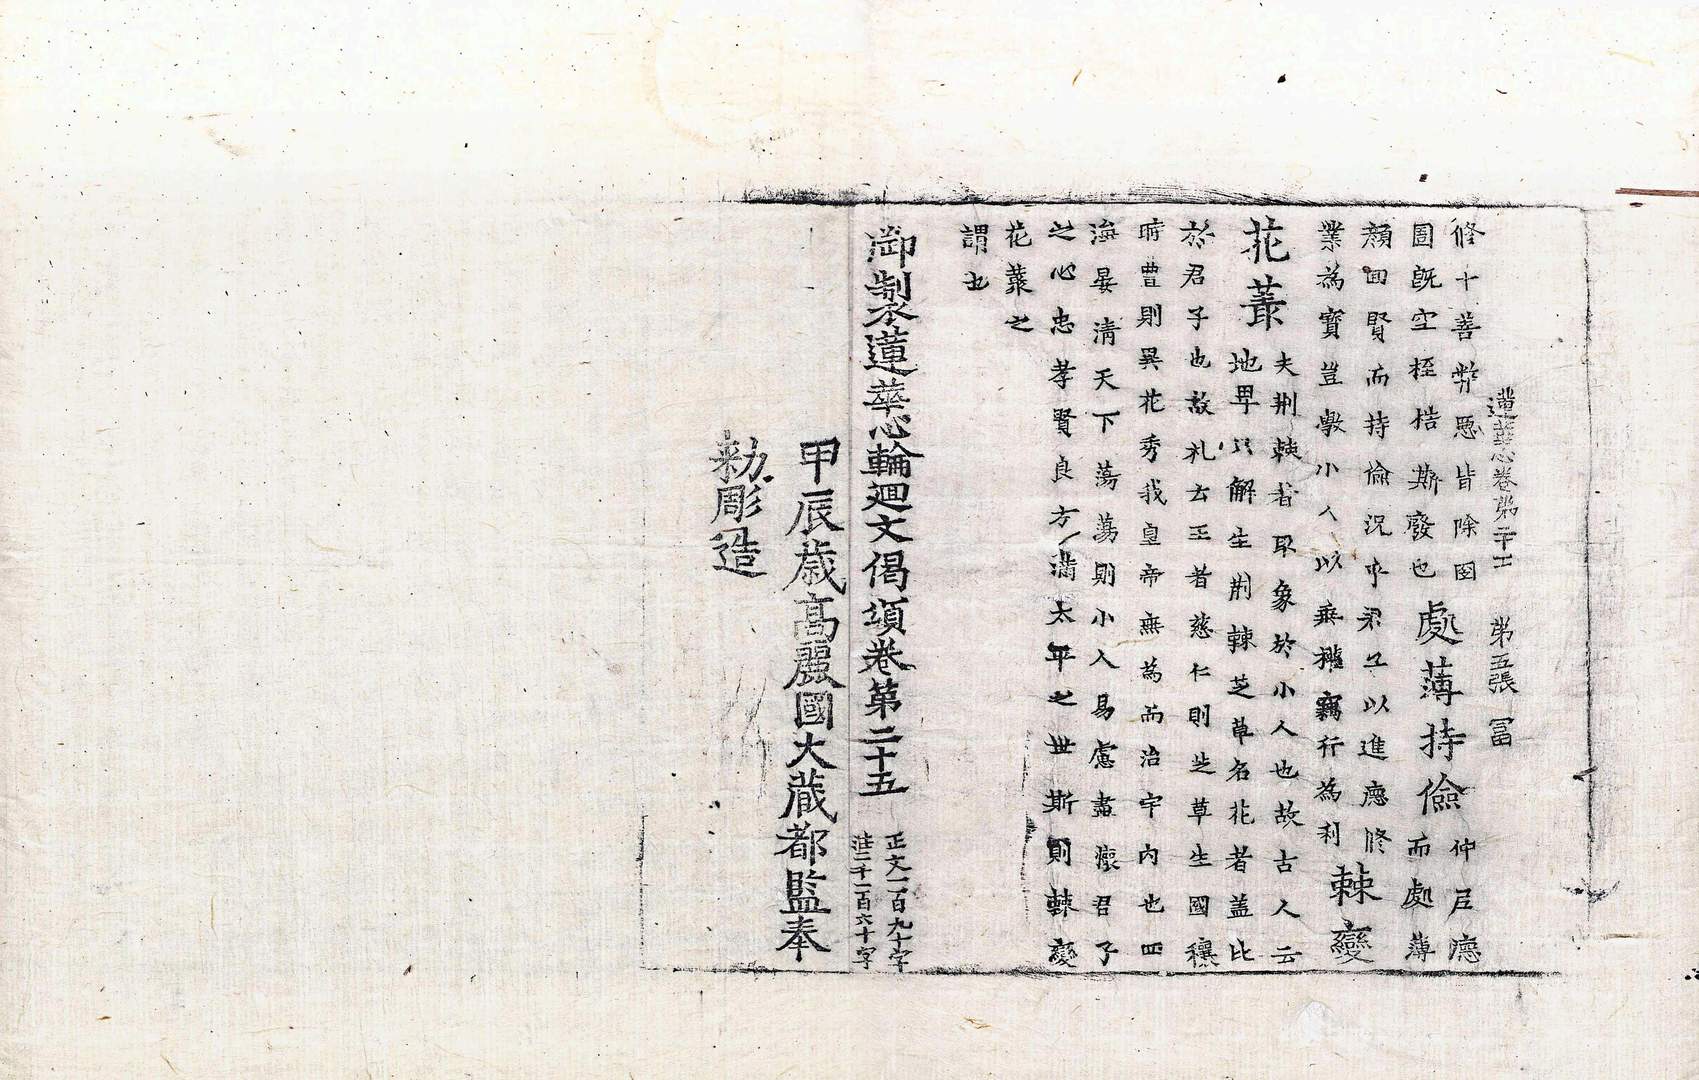 蓮華心卷第二十五 第五張 冨
修十善弊惡皆除囹
圄旣空桎梏斯廢也處薄持儉仲尼德
而處薄
顔回賢而持儉況乎君子以進德修
業為寶豈學小人以無稽竊行為利棘變
花叢夫荆棘者取象於小人也故古人云
地卑只解生荆棘芝草名花者盖比
於君子也故礼云王者慈仁則芝草生國穰
時豊則異花秀我皇帝無為而治宇内也四
海晏清天下蕩蕩則小人易慮盡懷君子
之心忠孝賢良方滿太平之世斯則棘變
花叢之
謂也
御製蓮華心輪廻文偈頌卷第二十五
正文一百九十字
注二千一百六十字
甲辰歲高麗國大藏都監奉
勑彫造